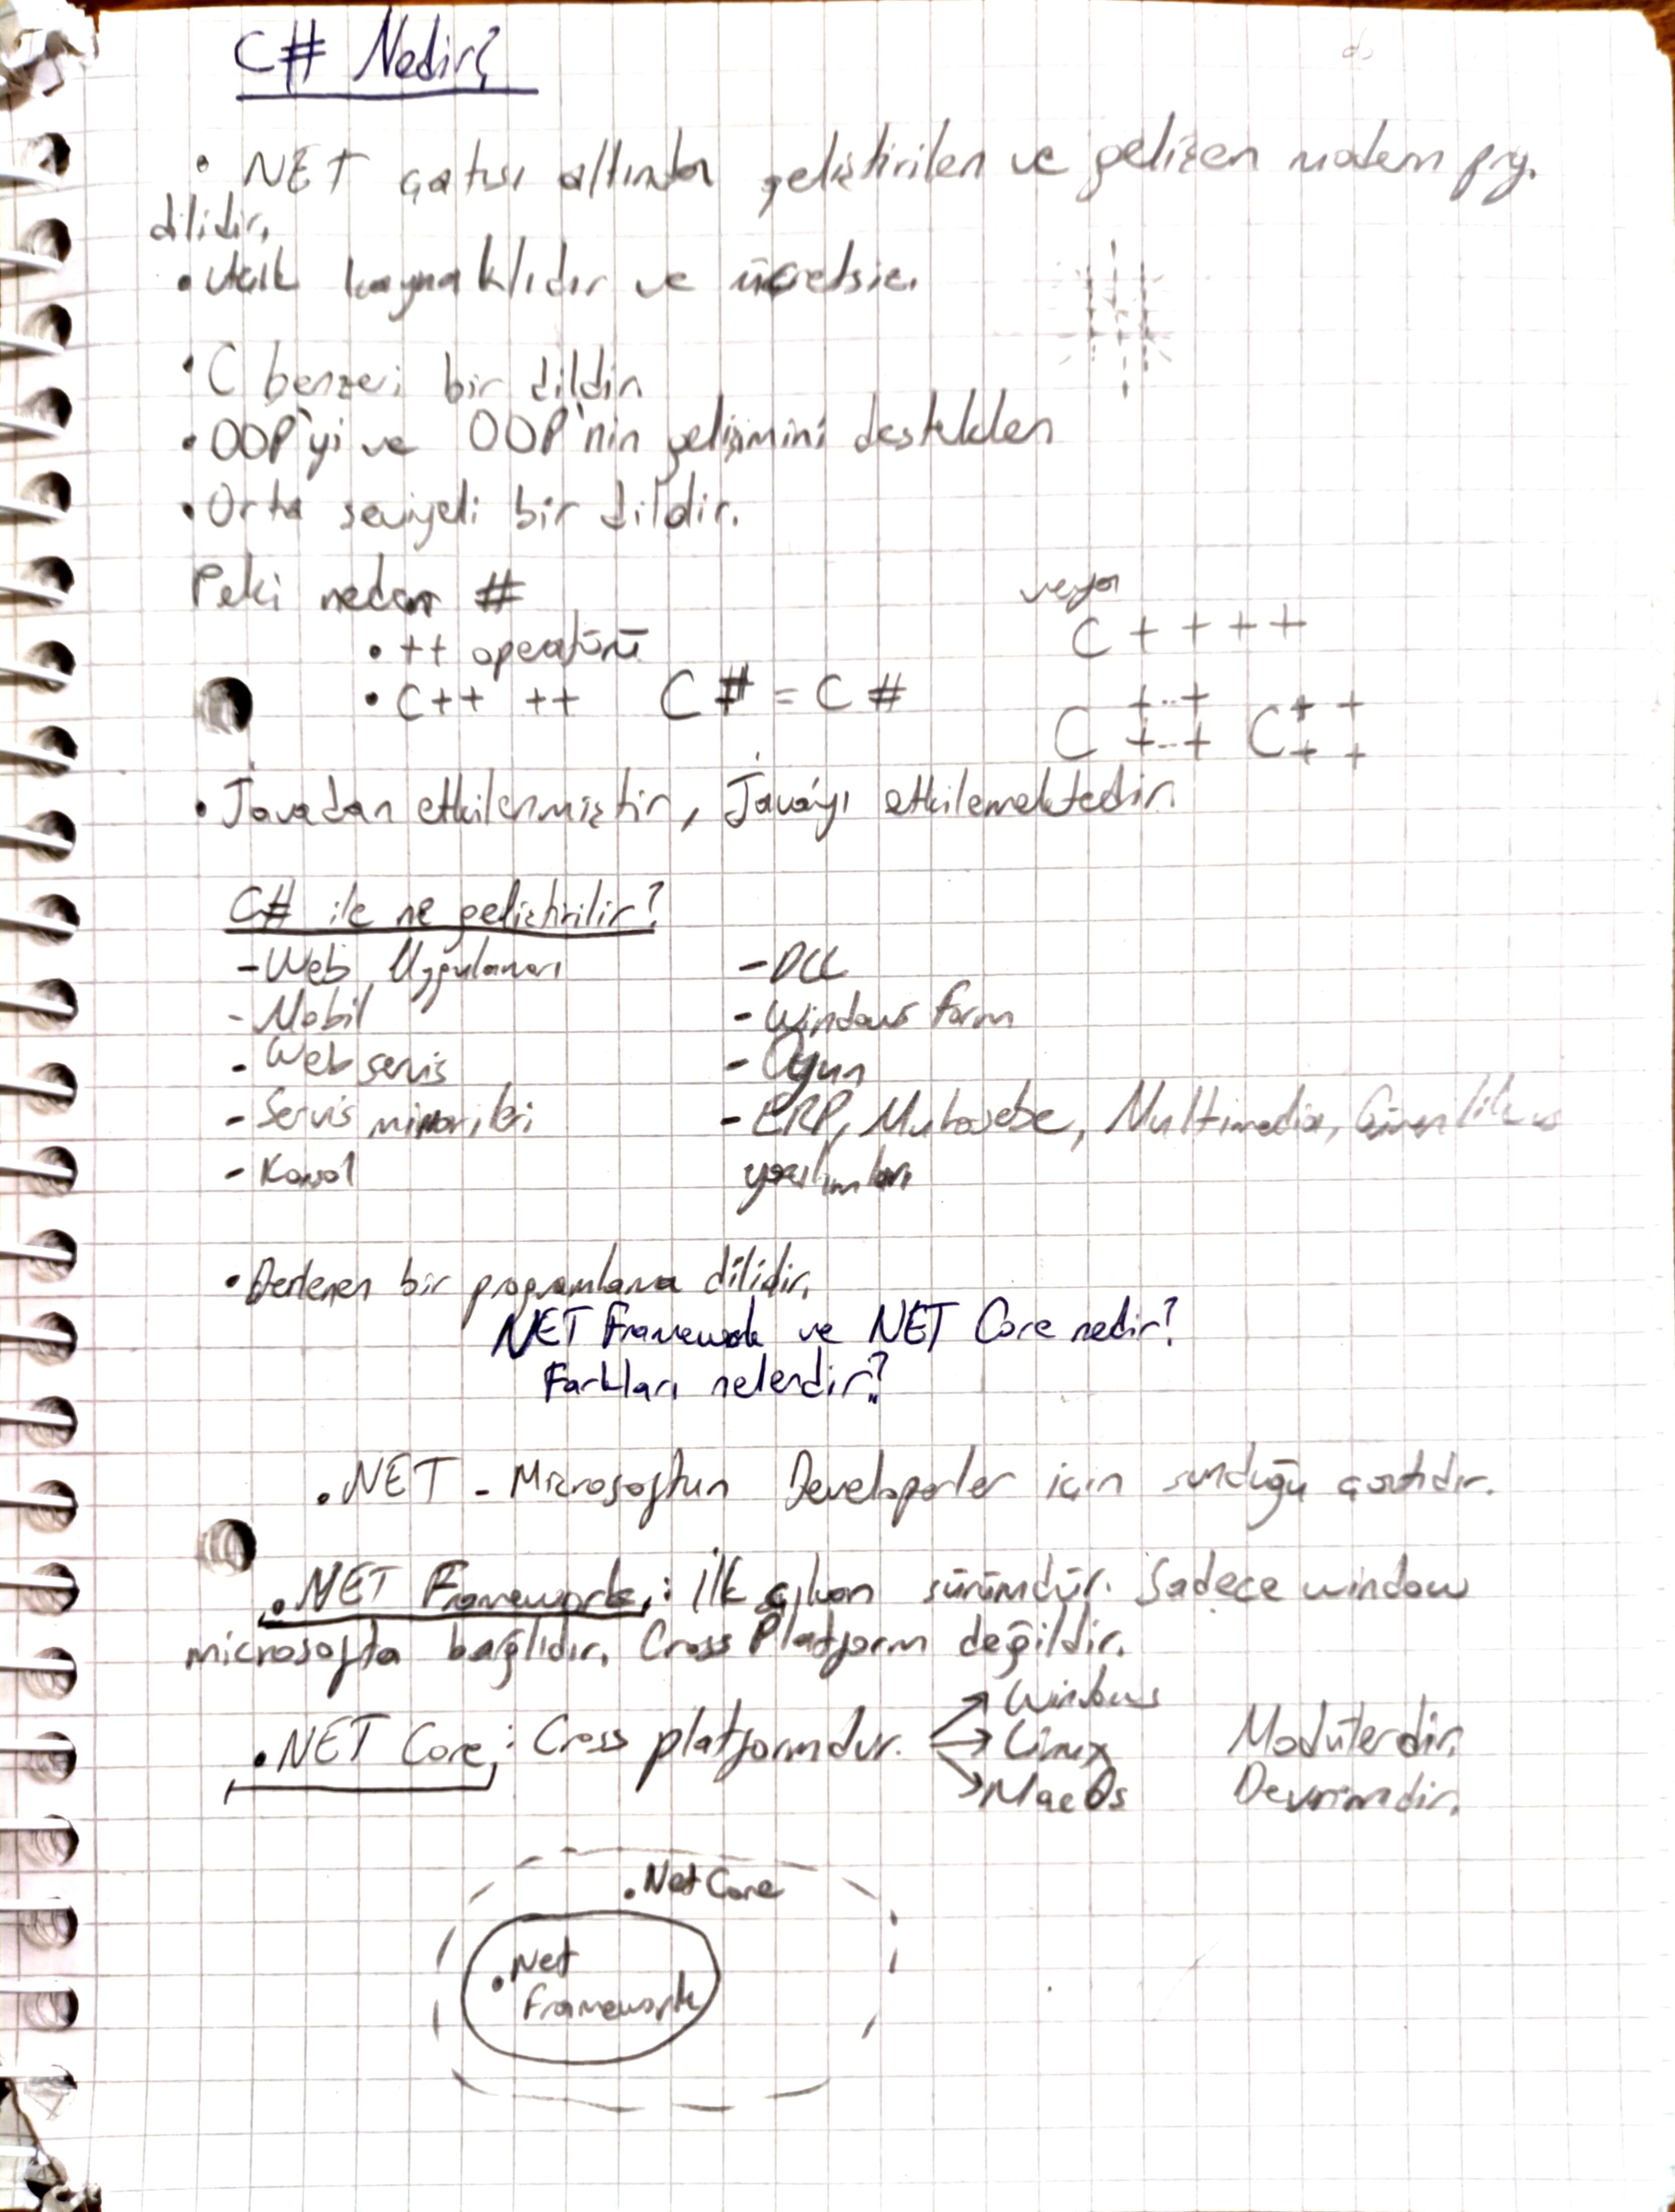 C# Nedir?
• NET çatısı altında geliştirilen ve gelişen modern prg.
dilidir.
• Açık kaynaklıdır ve ücretsiz.
• C benzeri bir dildir.
• OOP'yi ve OOP'nin gelişimini destekler
• Orta seviyeli bir dildir.
Peki neden #
veya
C + + + +
• ++ operatörü
• C++ ++ C # = C #
C C
• Javadan etkilenmiştir, Java'yı etkilemektedir.
C# ile ne geliştirilir?
- Web Uygulaması
- DLL
- Mobil
- Windows Form
- Web servis
- Oyun
- Servis mimarileri
- ERP, Muhasebe, Multimedia, Güvenlik
- Konsol
yazılımları
• Derlenen bir programlama dilidir.
NET Framework ve NET Core nedir?
Farkları nelerdir?
.NET - Microsoftun Developerler için sunduğu çatıdır.
.NET Framework: İlk çıkan sürümdür. Sadece window
microsofta bağlıdır. Cross Platform değildir.
.NET Core: Cross platformdur. → Windows
→ Linux
→ MacOs
Modülerdir.
Devrimdir.
.Net Core
.Net
Framework